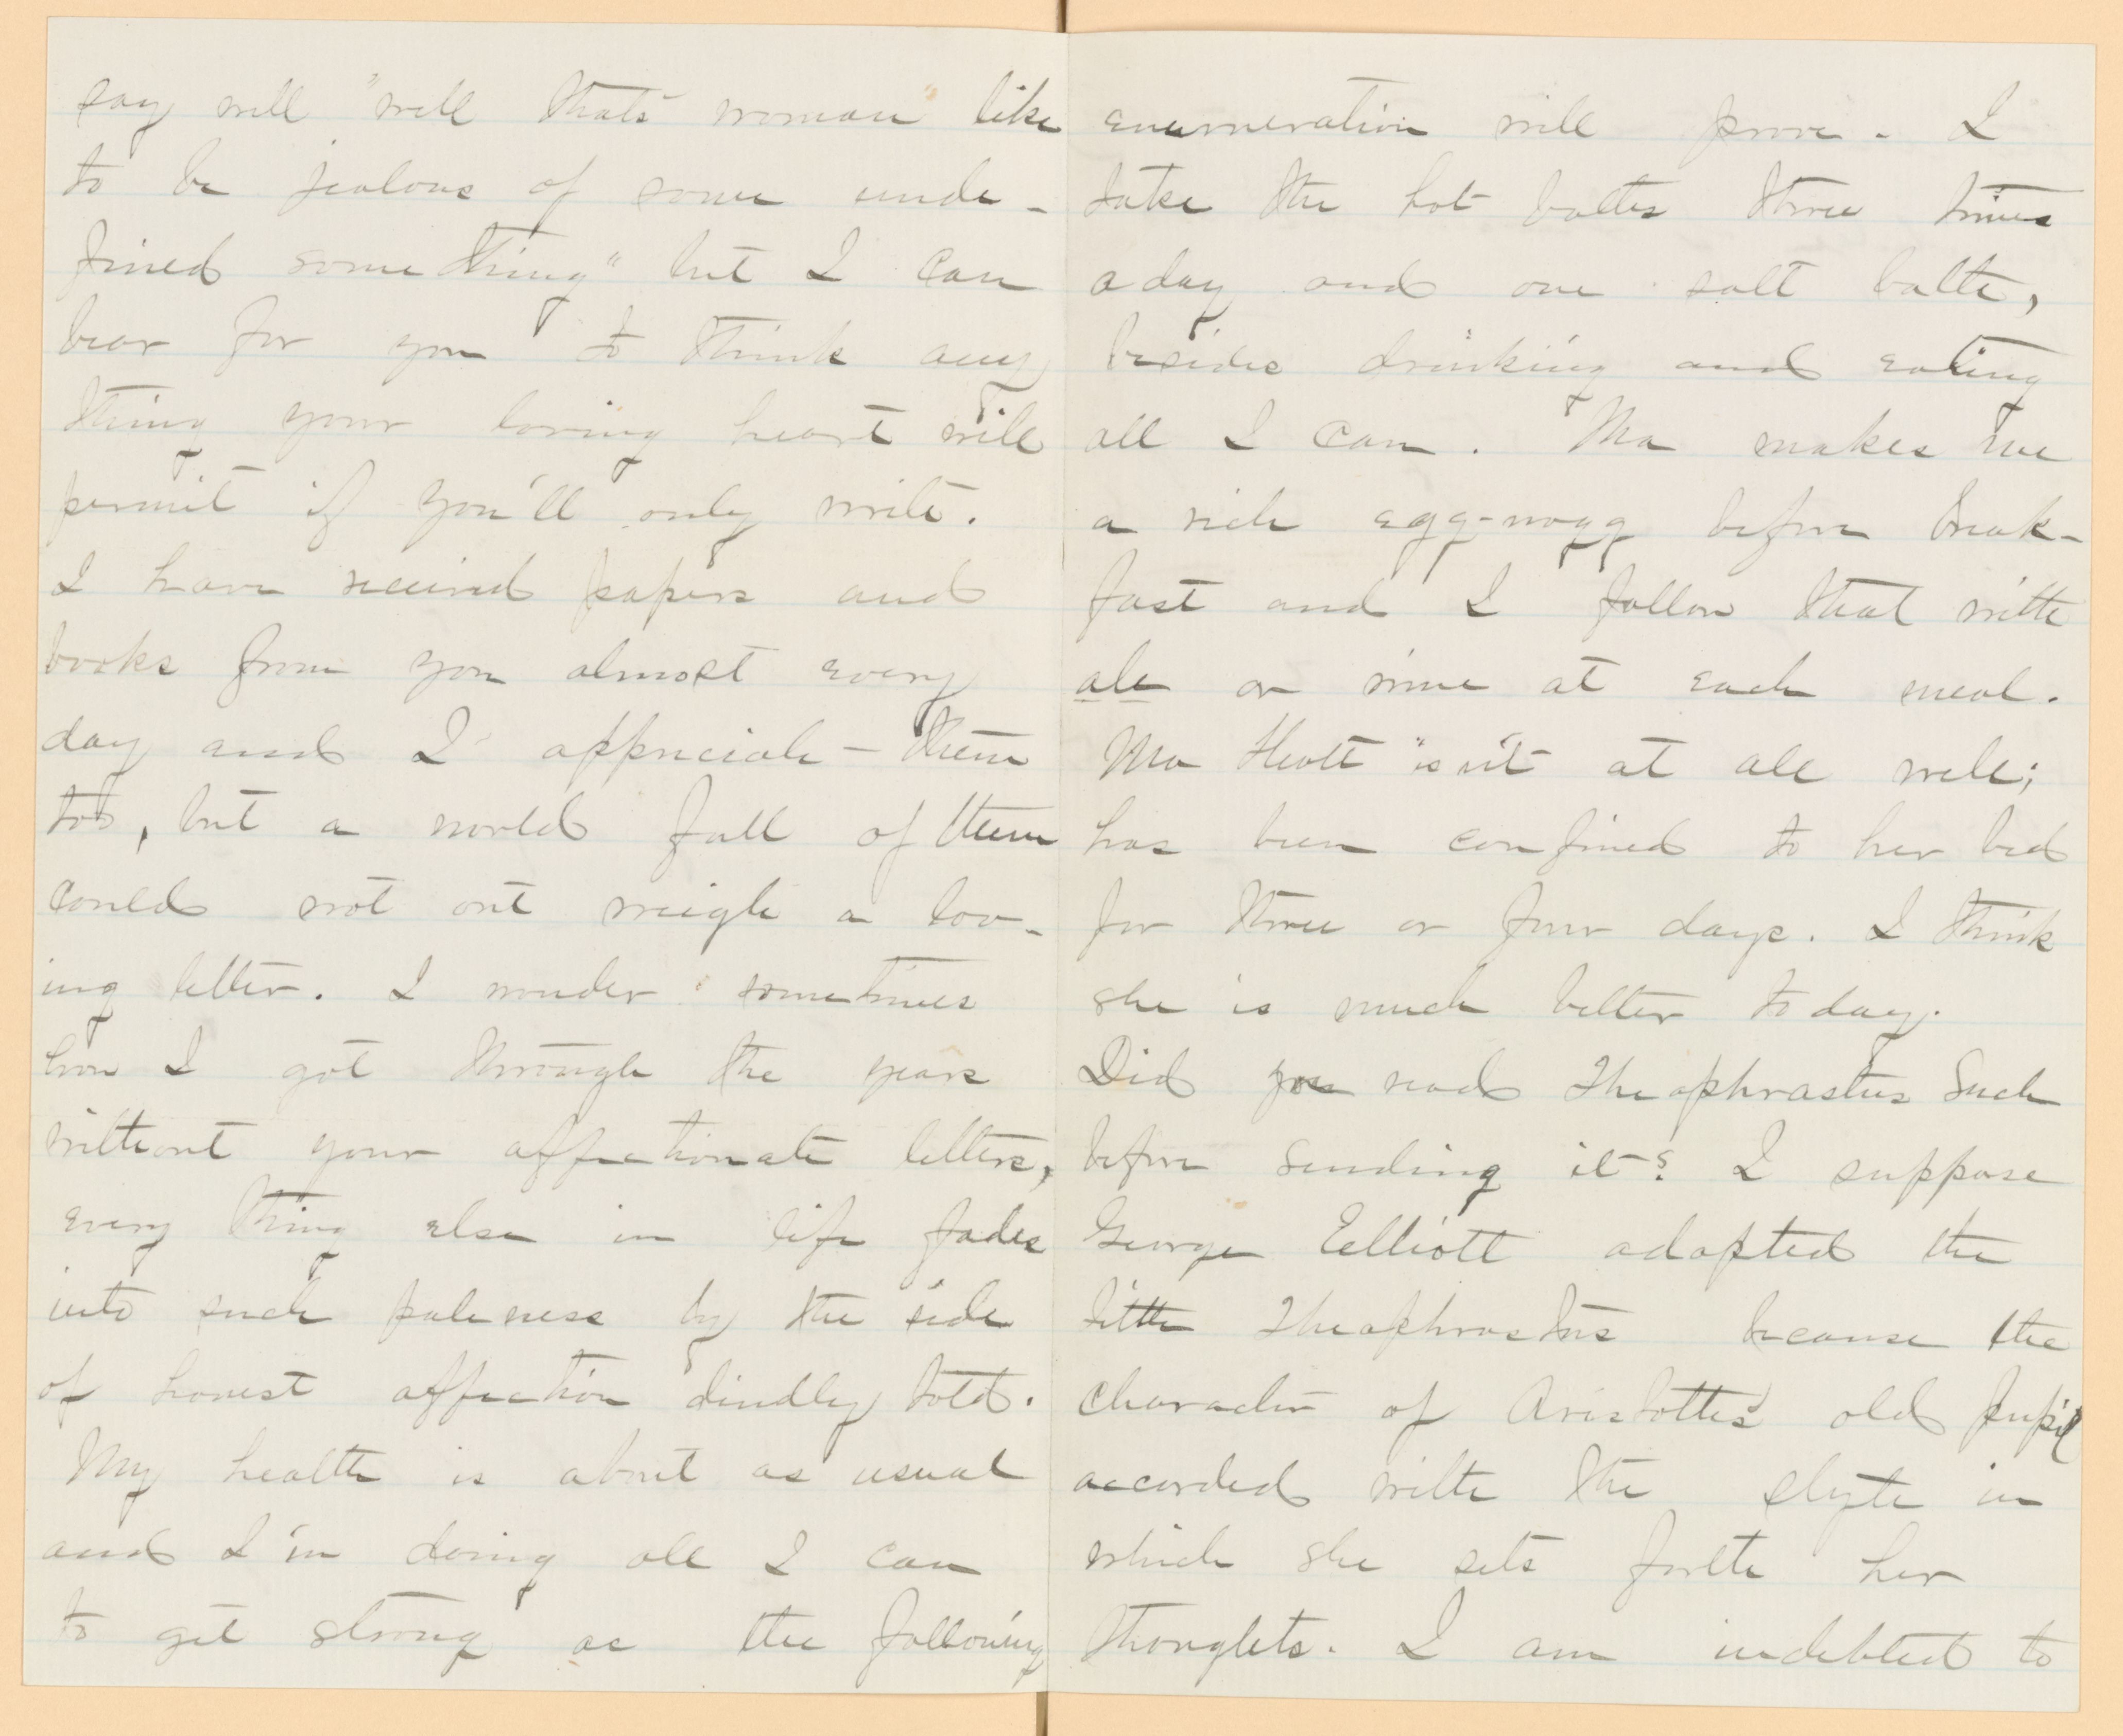 say will "well thats woman" like
to be jealous of some unde-
fined something" but I can
bear for you to think any
thing your loving heart will
permit if you'll only write.
I have received papers and
books from you almost every
day and I appreciate - them
too, but a world full of them
could not out weigh a lov-
ing letter. I wonder sometimes
how I got through the years
without your affectionate letters,
every thing else in life fades
into such paleness by the side
of honest affection kindly told.
My health is about as usual
and I'm doing all I can
to get strong as the following
enumeration will prove. I
take the hot baths three times
a day and one salt bath,
besides drinking and eating
all I can. Ma makes me
a rich egg-nogg before break-
fast and I follow that with
ale or wine at each meal.
Ma Hiott is n't at all well;
has been confined to her bed
for three or four days. I think
she is much better to day.
Did you read Theophrastus Such
before sending it? I suppose
George Elliott adopted the
title Theophrastus because the
character of Aristottes' old pupil
accorded with the slyte in
which she sets forth her
thoughts. I am indebted to